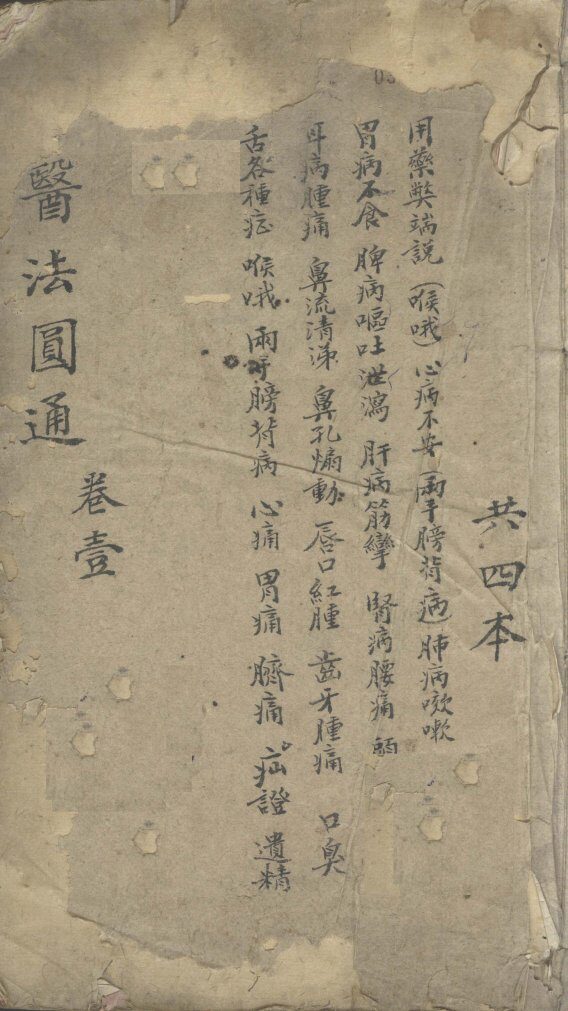 共四本
用藥弊端説（喉哦）心病不安（兩手膀背病）肺病咳嗽
胃病不食 脾病嘔吐泄瀉 肝病筋攣 腎病腰痛
耳病腫痛 鼻流清涕 鼻孔煽動 唇口紅腫 齒牙腫痛 口臭
舌各種症 喉哦 兩手膀背病 心痛 胃痛 臍痛 疝證 遺精
醫法圓通
卷壹